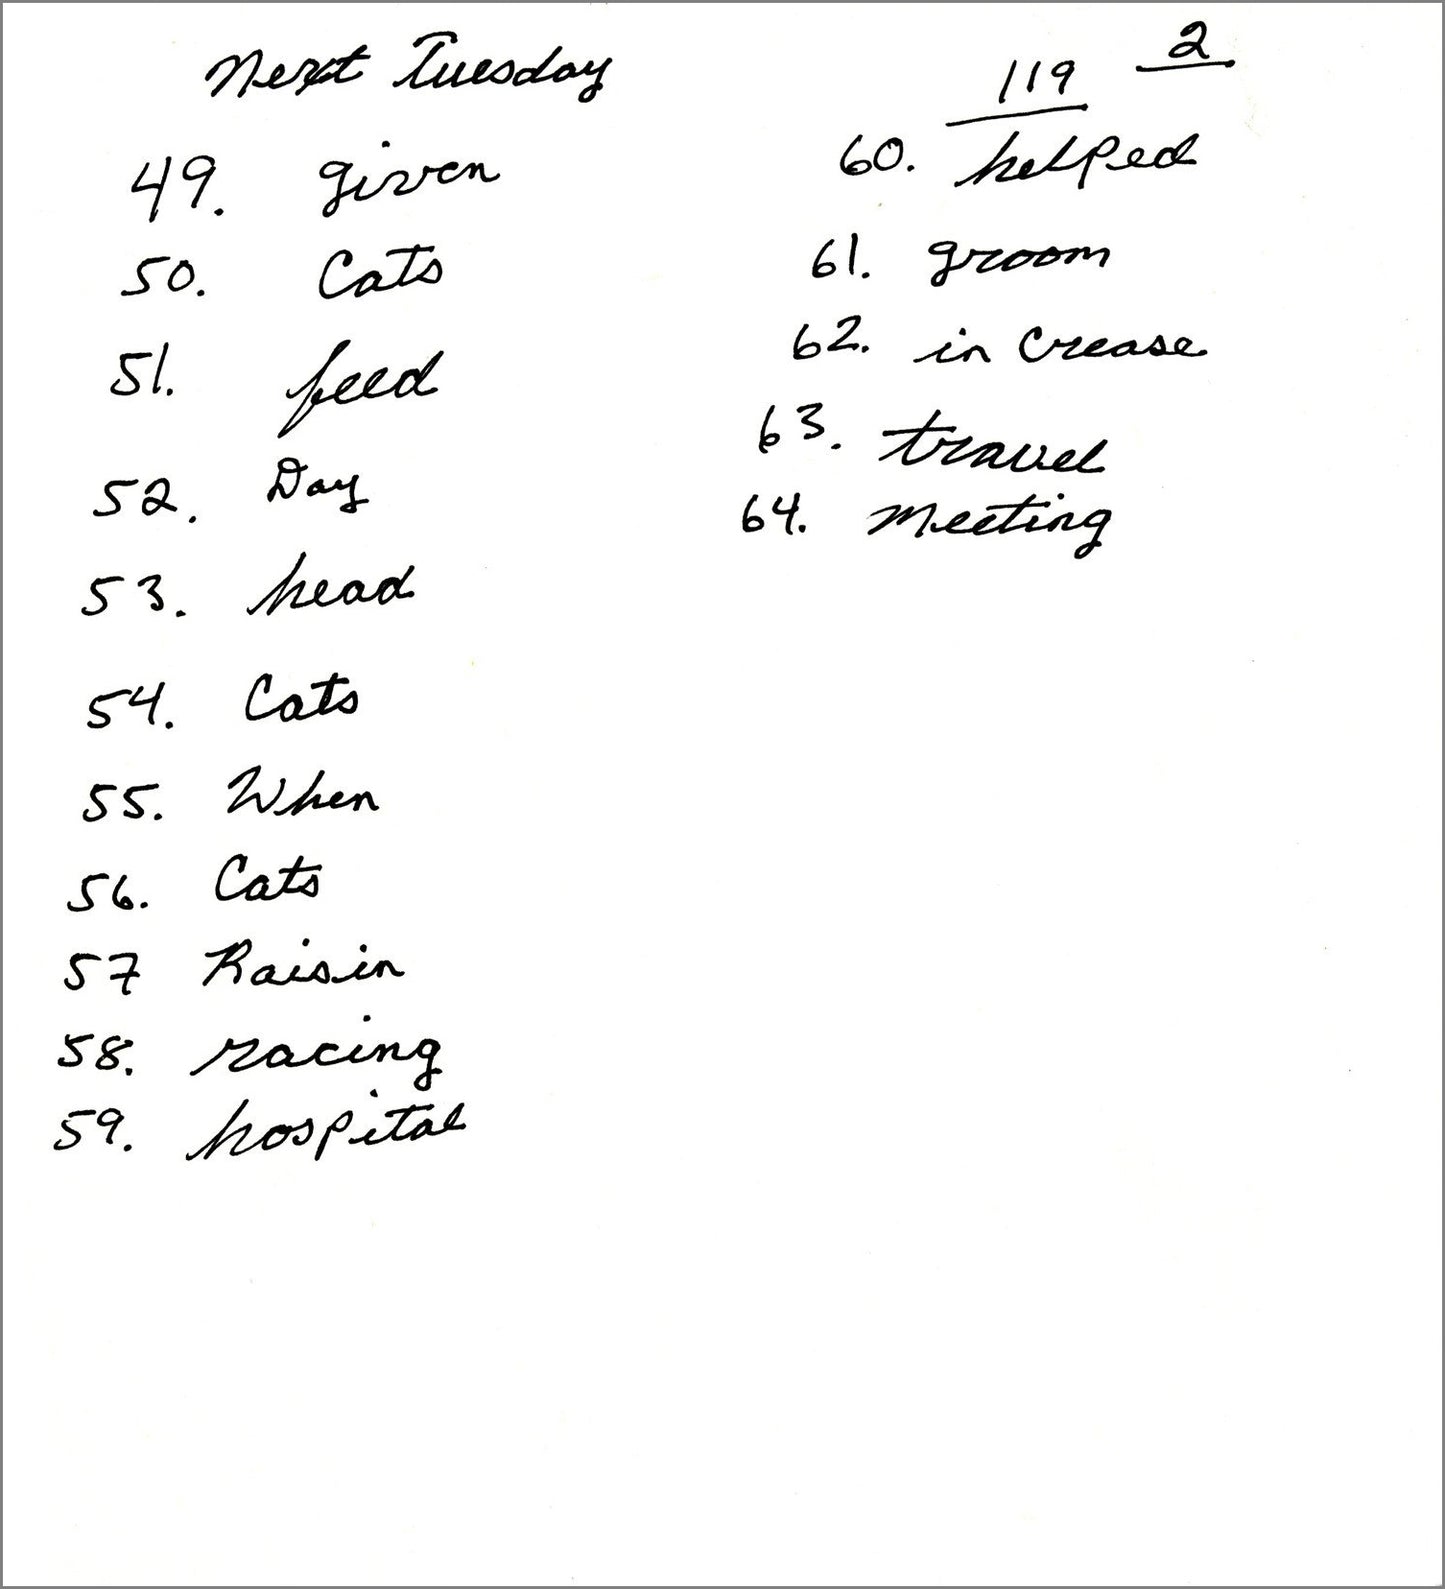 Next Tuesday
49. given
50. Cats
51. feed
52. Day
53. head
54. Cats
55. When
56. Cats
57 Raisin
58. racing
59. hospital
2
119
60. helped
61. groom
62. in crease
63. travel
64. meeting